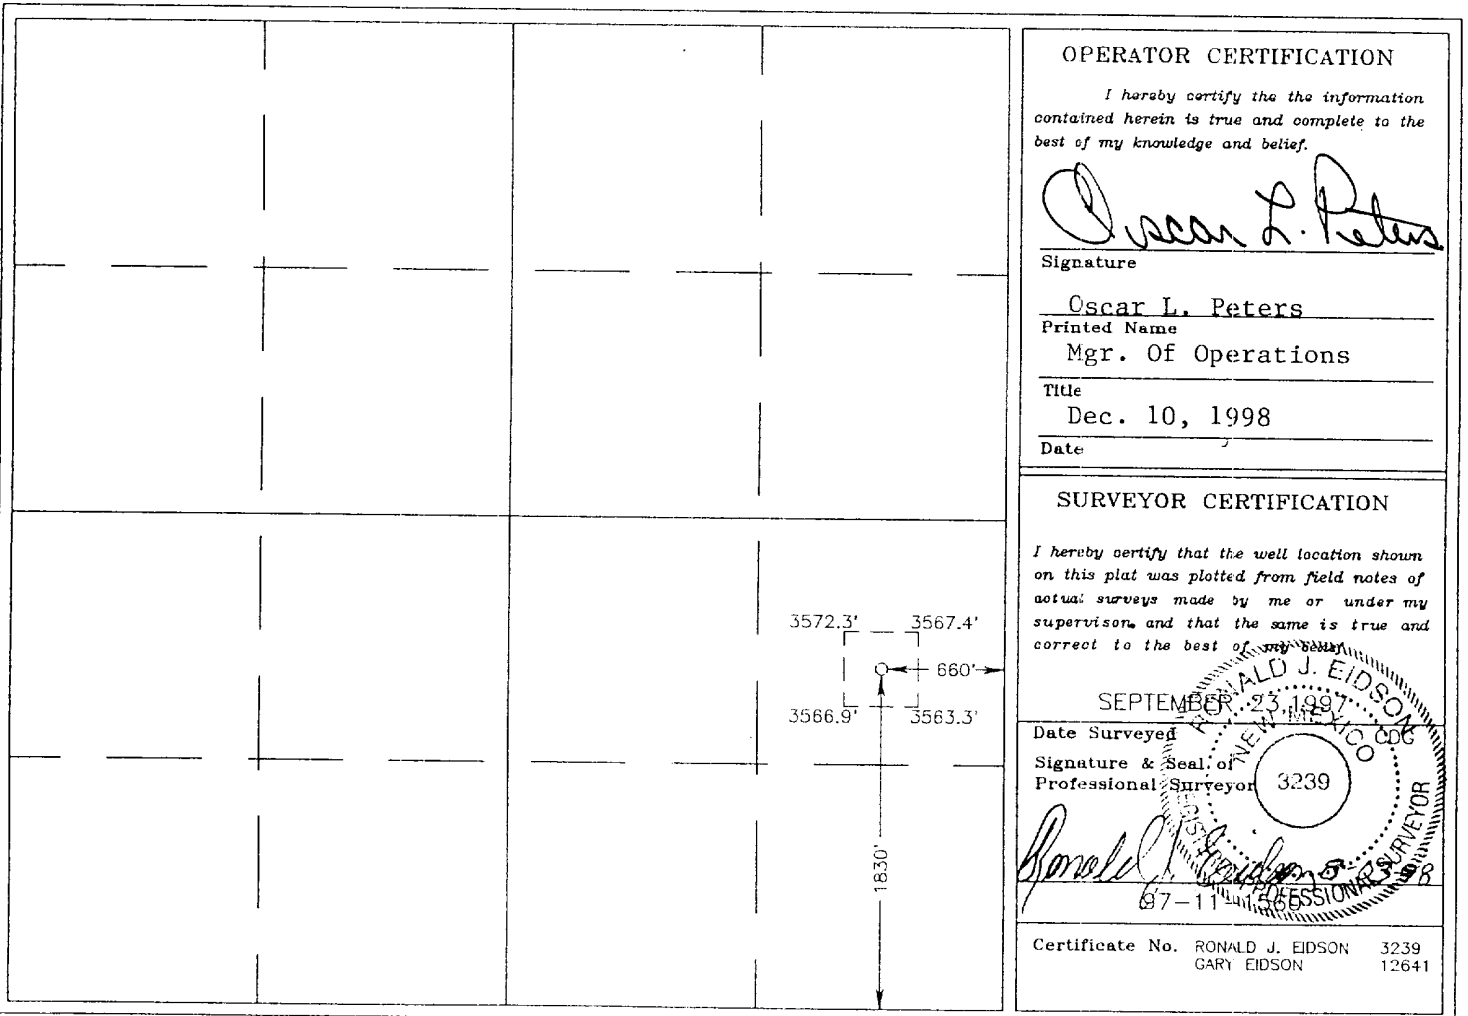 3572.3' 3567.4'
660'
3566.9' 3563.3'
1830'
OPERATOR CERTIFICATION
I hereby certify the the information
contained herein is true and complete to the
best of my knowledge and belief.
Oscar L. Peters
Signature
Oscar L. Peters
Printed Name
Mgr. Of Operations
Title
Dec. 10, 1998
Date
SURVEYOR CERTIFICATION
I hereby certify that the well location shown
on this plat was plotted from field notes of
actual surveys made by me or under my
supervison, and that the same is true and
correct to the best of my belief.
SEPTEMBER 23, 1997
Date Surveyed CDG
Signature & Seal of
Professional Surveyor
RONALD J. EIDSON
NEW MEXICO
3239
PROFESSIONAL SURVEYOR
Ronald J. Eidson
97-11-1560
Certificate No. RONALD J. EIDSON 3239
GARY EIDSON 12641